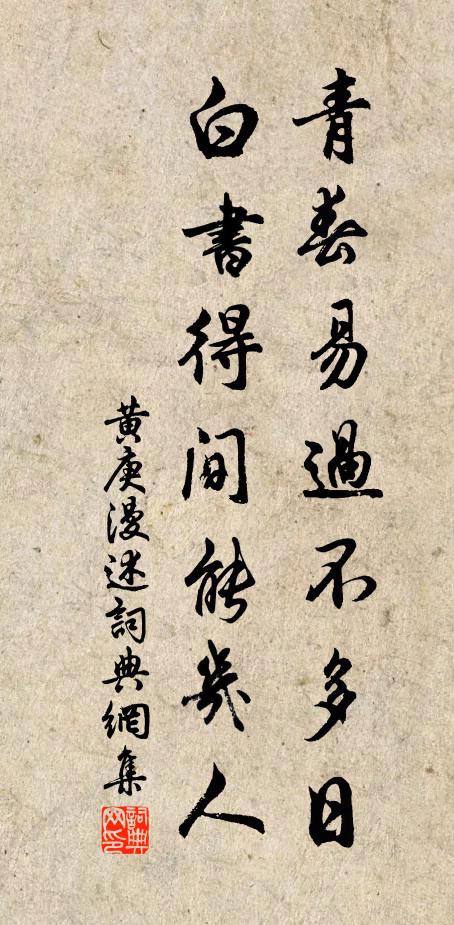 青春易過不多日
白書得間能幾人
黃庚漫述詞典網集
詞典網印